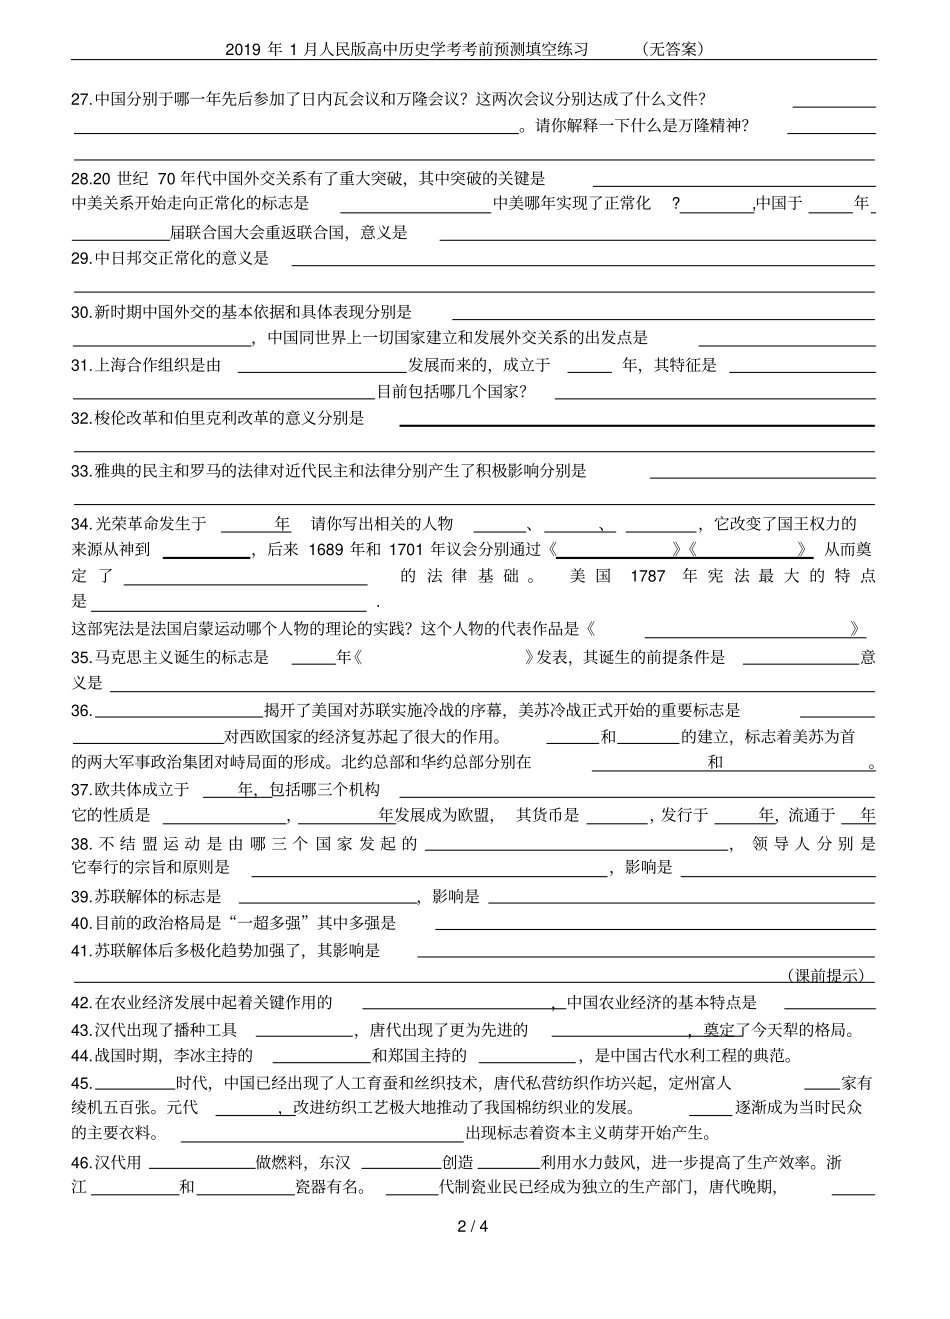 2019 年 1 月人民版高中历史学考考前预测填空练习 （无答案）
27.中国分别于哪一年先后参加了日内瓦会议和万隆会议？这两次会议分别达成了什么文件？
。请你解释一下什么是万隆精神？
28.20 世纪 70 年代中国外交关系有了重大突破，其中突破的关键是
中美关系开始走向正常化的标志是 中美哪年实现了正常化 ? ,中国于 年
届联合国大会重返联合国，意义是
29.中日邦交正常化的意义是
30.新时期中国外交的基本依据和具体表现分别是
，中国同世界上一切国家建立和发展外交关系的出发点是
31.上海合作组织是由 发展而来的，成立于 年，其特征是
目前包括哪几个国家？
32.梭伦改革和伯里克利改革的意义分别是
33.雅典的民主和罗马的法律对近代民主和法律分别产生了积极影响分别是
34.光荣革命发生于 年 请你写出相关的人物 、 、 ，它改变了国王权力的
来源从神到 ，后来 1689 年和 1701 年议会分别通过《 》《 》 从而奠
定 了 的 法 律 基 础 。 美 国 1787 年 宪 法 最 大 的 特 点
是 .
这部宪法是法国启蒙运动哪个人物的理论的实践？这个人物的代表作品是《 》
35.马克思主义诞生的标志是 年《 》发表，其诞生的前提条件是 意
义是
36. 揭开了美国对苏联实施冷战的序幕，美苏冷战正式开始的重要标志是
对西欧国家的经济复苏起了很大的作用。 和 的建立，标志着美苏为首
的两大军事政治集团对峙局面的形成。北约总部和华约总部分别在 和 。
37.欧共体成立于 年，包括哪三个机构
它的性质是 ， 年发展成为欧盟， 其货币是 ，发行于 年，流通于 年
38. 不 结 盟 运 动 是 由 哪 三 个 国 家 发 起 的 ， 领 导 人 分 别 是
它奉行的宗旨和原则是 ，影响是
39.苏联解体的标志是 ，影响是
40.目前的政治格局是“一超多强”其中多强是
41.苏联解体后多极化趋势加强了，其影响是
（课前提示）
42.在农业经济发展中起着关键作用的 ，中国农业经济的基本特点是
43.汉代出现了播种工具 ，唐代出现了更为先进的 ，奠定了今天犁的格局。
44.战国时期，李冰主持的 和郑国主持的 ，是中国古代水利工程的典范。
45. 时代，中国已经出现了人工育蚕和丝织技术，唐代私营纺织作坊兴起，定州富人 家有
绫机五百张。元代 ，改进纺织工艺极大地推动了我国棉纺织业的发展。 逐渐成为当时民众
的主要衣料。 出现标志着资本主义萌芽开始产生。
46.汉代用 做燃料，东汉 创造 利用水力鼓风，进一步提高了生产效率。浙
江 和 瓷器有名。 代制瓷业民已经成为独立的生产部门，唐代晚期，
2 / 4